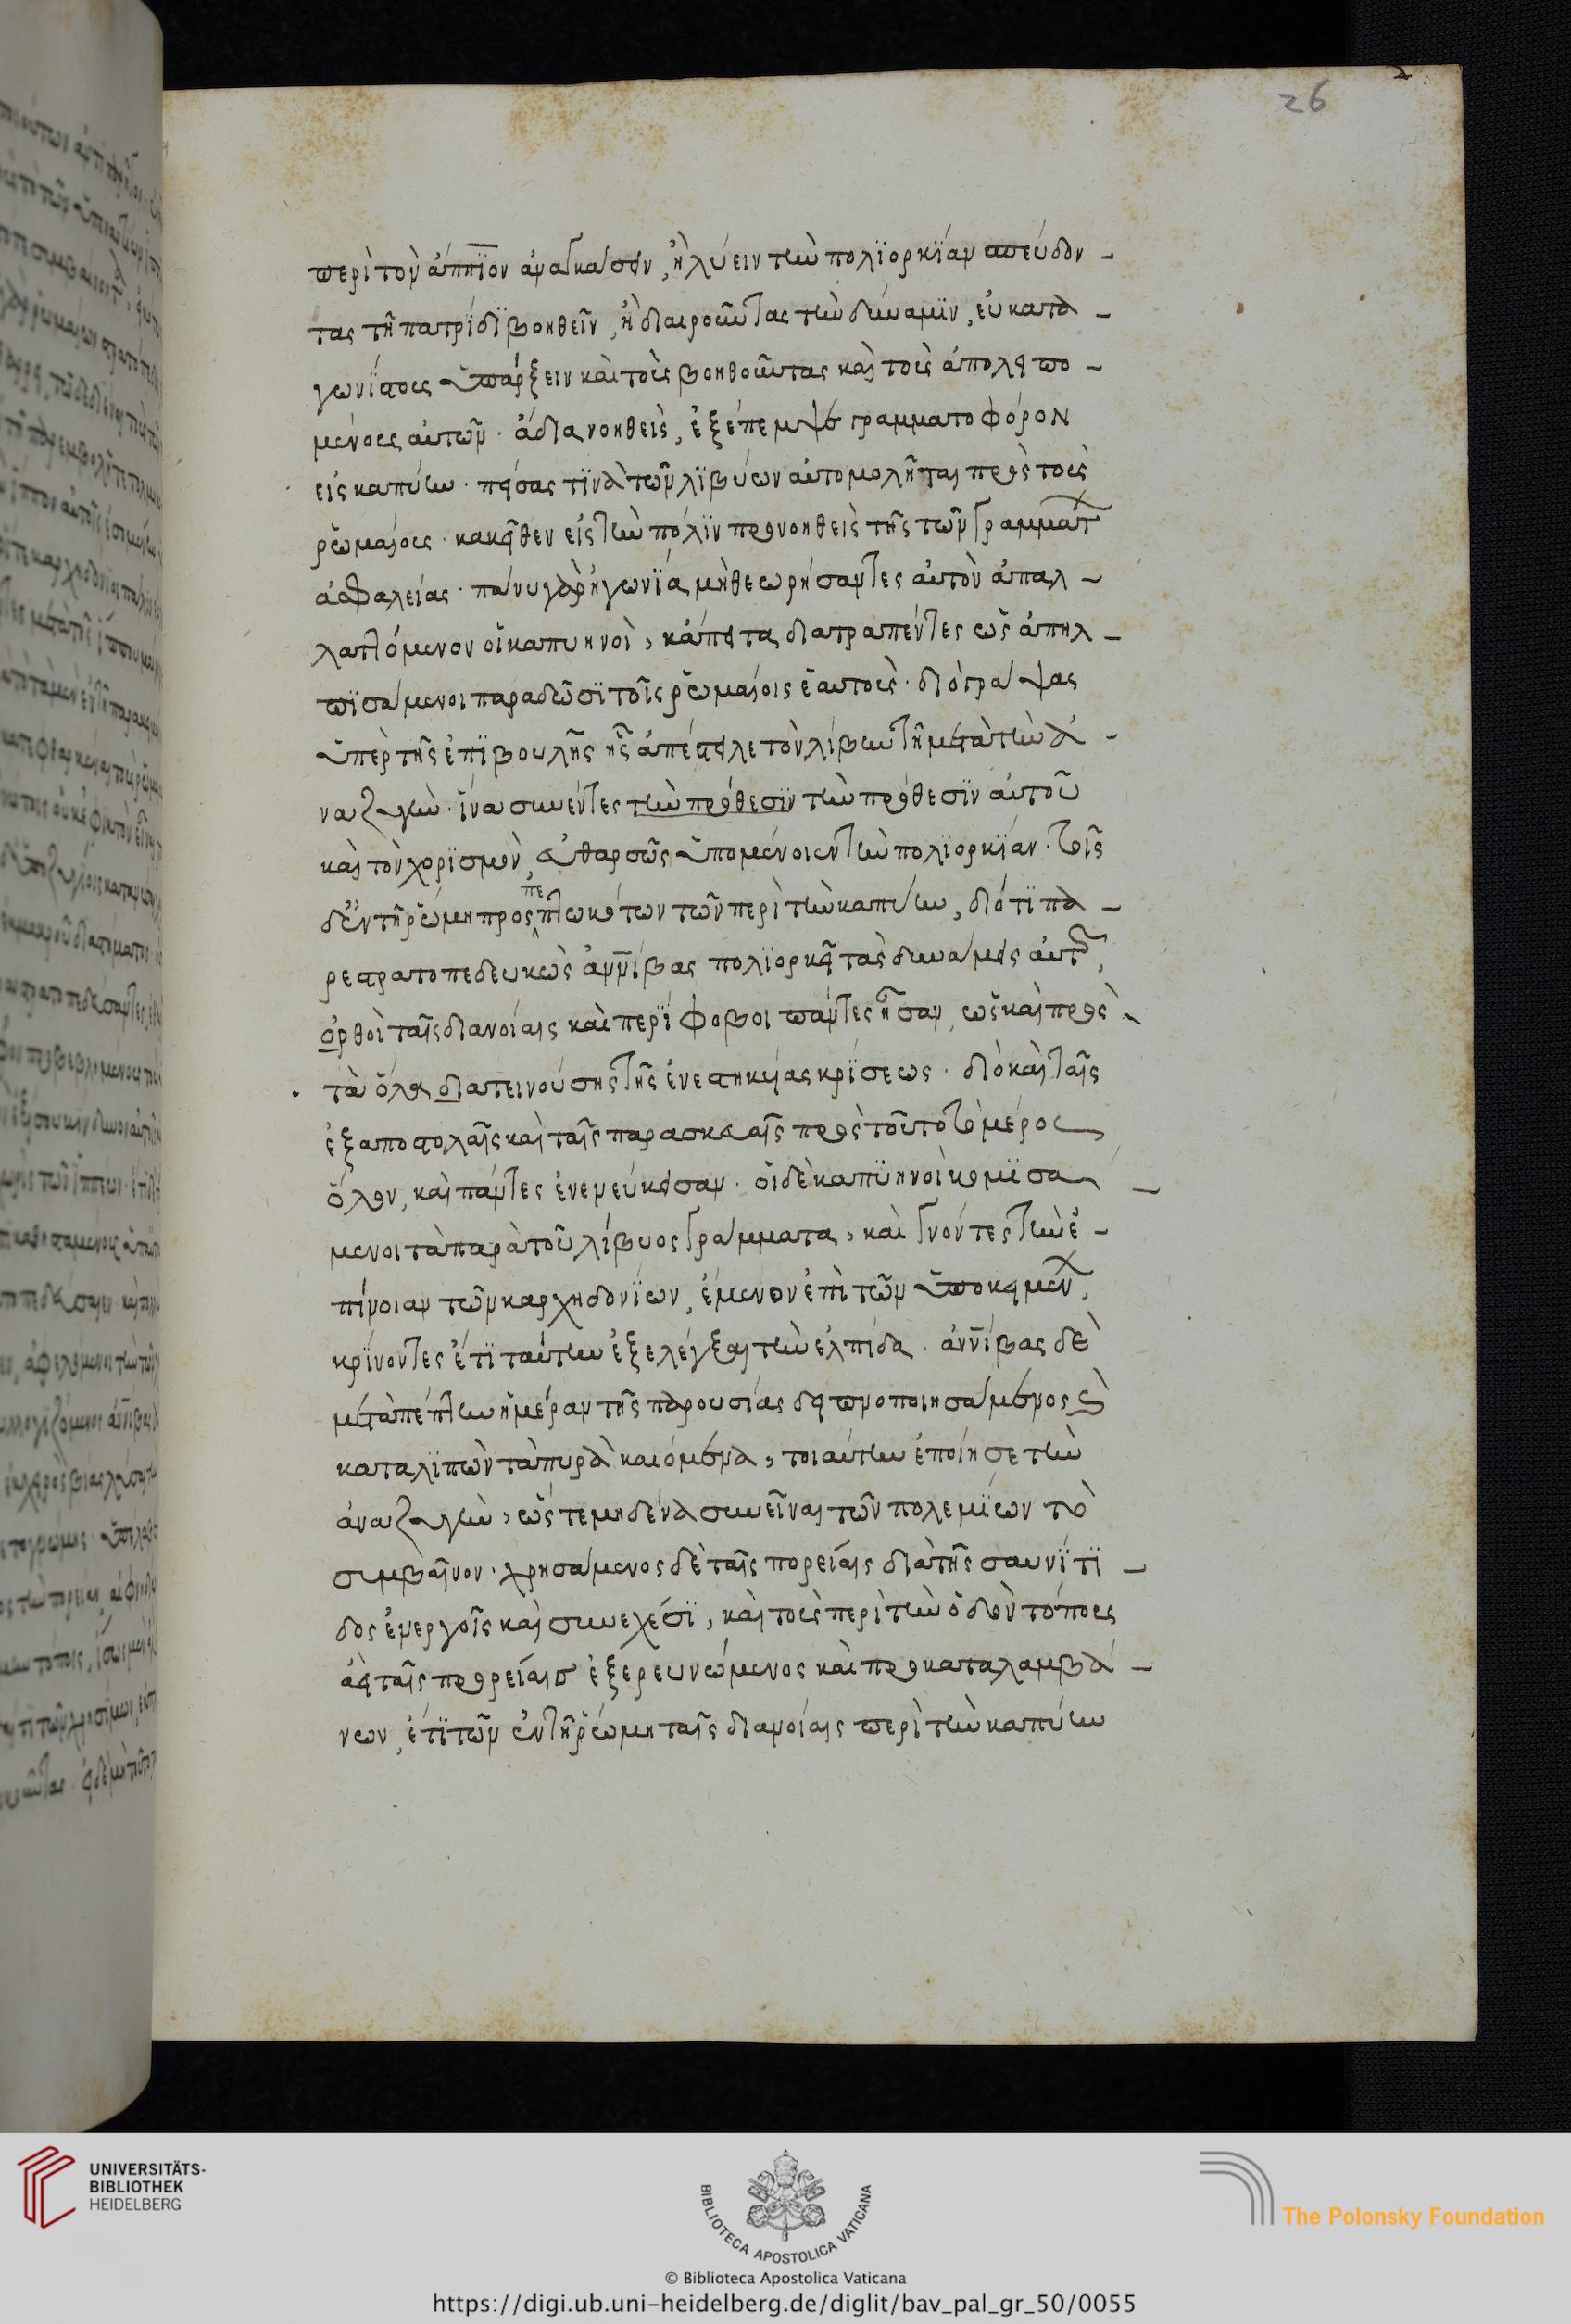 26
περὶ τὸν ἄππϊον ἀναγκάσειν, ἢ λύειν τὴν πολϊορκΐαν σπεύδον-
τας τῇ πατρίδϊ βοηθεῖν, ἢ διαιροῦντας τὴν δύναμϊν, εὐκατα-
γωνίστους ὑπάρξειν καὶ τοὺς βοηθοῦντας καὶ τοὺς ἀπολειπο-
μένους αὐτῶν· ἃ διανοηθεὶς, ἐξέπεμψε γραμματοφόρον
εἰς καπύην· πείσας τϊνὰ τῶν λϊβύων αὐτομολῆσαι πρὸς τοὺς
ῥωμαίους· κακεῖθεν εἰς τὴν πόλϊν προνοηθεὶς τῆς τῶν γραμμάτ
ἀσφαλείας· πάνυ γὰρ ἠγωνΐα μὴ θεωρήσαντες αὐτὸν ἀπαλ-
λαττόμενον οἱ καπυηνοὶ, κἄπειτα διατραπέντες ὡς ἀπηλ-
πϊσμένοι παραδῶσϊ τοῖς ῥωμαίοις ἑαυτοὺς· διὸ γράψας
ὑπὲρ τῆς ἐπϊβουλῆς ἧς ἀπέστειλε τὸν λίβυν τῇ μετὰ τὴν ἀ-
ναζυγὴν· ἵνα συνέντες τὴν πρόθεσϊν τὴν πρόθεσϊν αὐτοῦ
καὶ τὸν χορϊσμὸν, εὐθαρσῶς ὑπομένοιεν τὴν πολϊορκΐαν· τοῖς
δ' ἐν τῇ ῥώμη προσπεπτωκότων τῶν περὶ τὴν καπύην, διότϊ πα-
ρεστρατοπεδευκὼς ἀννίβας πολϊορκεῖ τὰς δυνάμεις αὐτ,
ὀρθοὶ ταῖς διανοίαις καὶ περΐφοβοι πάντες ἦσαν, ὡς καὶ πρὸς
τὰ ὅλα διατεινούσης τῆς ἐνεστηκυίας κρΐσεως· διὸ καὶ ταῖς
ἐξαποστολαῖς καὶ ταῖς παρασκευαῖς πρὸς τοῦτο τὸ μέρος
ὅλον, καὶ πάντες ἐνενεύκεισαν· οἱ δὲ καπϋηνοὶ κομϊσά-
μενοι τὰ παρὰ τοῦ λίβυος γράμματα, καὶ γνόντες τὴν ἐ-
πίνοιαν τῶν καρχηδονΐων, ἔμενον ἐπὶ τῶν ὑποκειμέν,
κρΐνοντες ἔτϊ ταύτην ἐξελέγξαι τὴν ἐλπίδα· ἀννίβας δὲ
μετὰ πέπτην ἡμέραν τῆς παρουσίας δειπνοποιησάμενος ϗ
καταλϊπὼν τὰ πυρὰ καιόμενα, τοιαύτην ἐποίησε τὴν
ἀναζυγὴν, ὥστε μηδένα συνεῖναι τῶν πολεμΐων τὸ
συμβαῖνον· χρησάμενος δὲ ταῖς πορείαις διὰ τῆς σαυνΐτϊ-
δος ἐνεργοῖς καὶ συνεχέσϊ, καὶ τοὺς περὶ τὴν ὁδὸν τόπους
ἀεὶ ταῖς προρείαις ἐξερευνώμενος καὶ προκαταλαμβά-
νων, ἔτϊ τῶν ἐν τῇ ῥώμη ταῖς διανοίαις περὶ τὴν καπύην
UNIVERSITÄTS-
BIBLIOTHEK
HEIDELBERG
BIBLIOTECA APOSTOLICA VATICANA
The Polonsky Foundation
© Biblioteca Apostolica Vaticana
https://digi.ub.uni-heidelberg.de/diglit/bav_pal_gr_50/0055